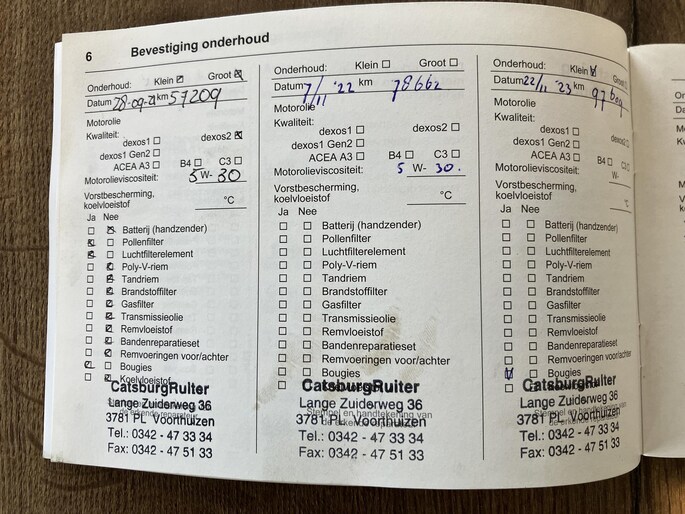 6 Bevestiging onderhoud
Onderhoud: Klein ☑ Groot ☒
Datum 28-09-21 km 57209
Motorolie
Kwaliteit:
dexos1 ☐ dexos2 ☒
dexos1 Gen2 ☐
ACEA A3 ☐ B4 ☐ C3 ☐
Motorolieviscositeit: 5 W- 30
Vorstbescherming,
koelvloeistof °C
Ja Nee
Batterij (handzender)
Pollenfilter
Luchtfilterelement
Poly-V-riem
Tandriem
Brandstoffilter
Gasfilter
Transmissieolie
Remvloeistof
Bandenreparatieset
Remvoeringen voor/achter
Bougies
Koelvloeistof
CatsburgRuiter
Lange Zuiderweg 36
de erkende reparateur
3781 PL Voorthuizen
Tel.: 0342 - 47 33 34
Fax: 0342 - 47 51 33
Onderhoud: Klein ☐ Groot ☐
Datum 7/11 '22 km 78662
Motorolie
Kwaliteit:
dexos1 ☐ dexos2 ☐
dexos1 Gen2 ☐
ACEA A3 ☐ B4 ☐ C3 ☐
Motorolieviscositeit: 5 W- 30.
Vorstbescherming,
koelvloeistof °C
Ja Nee
Batterij (handzender)
Pollenfilter
Luchtfilterelement
Poly-V-riem
Tandriem
Brandstoffilter
Gasfilter
Transmissieolie
Remvloeistof
Bandenreparatieset
Remvoeringen voor/achter
Bougies
CatsburgRuiter
Lange Zuiderweg 36
Stempel en handtekening van
3781 PL Voorthuizen
de erkende reparateur
Tel.: 0342 - 47 33 34
Fax: 0342 - 47 51 33
Onderhoud: Klein ☑ Groot ☐
Datum 22/11 '23 km
Motorolie
Kwaliteit:
dexos1 ☐ dexos2
dexos1 Gen2 ☐
ACEA A3 ☐ B4 ☐ C3
Motorolieviscositeit: W-
Vorstbescherming,
koelvloeistof °C
Ja Nee
Batterij (handzender)
Pollenfilter
Luchtfilterelement
Poly-V-riem
Tandriem
Brandstoffilter
Gasfilter
Transmissieolie
Remvloeistof
Bandenreparatieset
Remvoeringen voor/achter
Bougies
CatsburgRuiter
Lange Zuiderweg 36
3781 PL Voorthuizen
Tel.: 0342 - 47 33 34
Fax: 0342 - 47 51 33